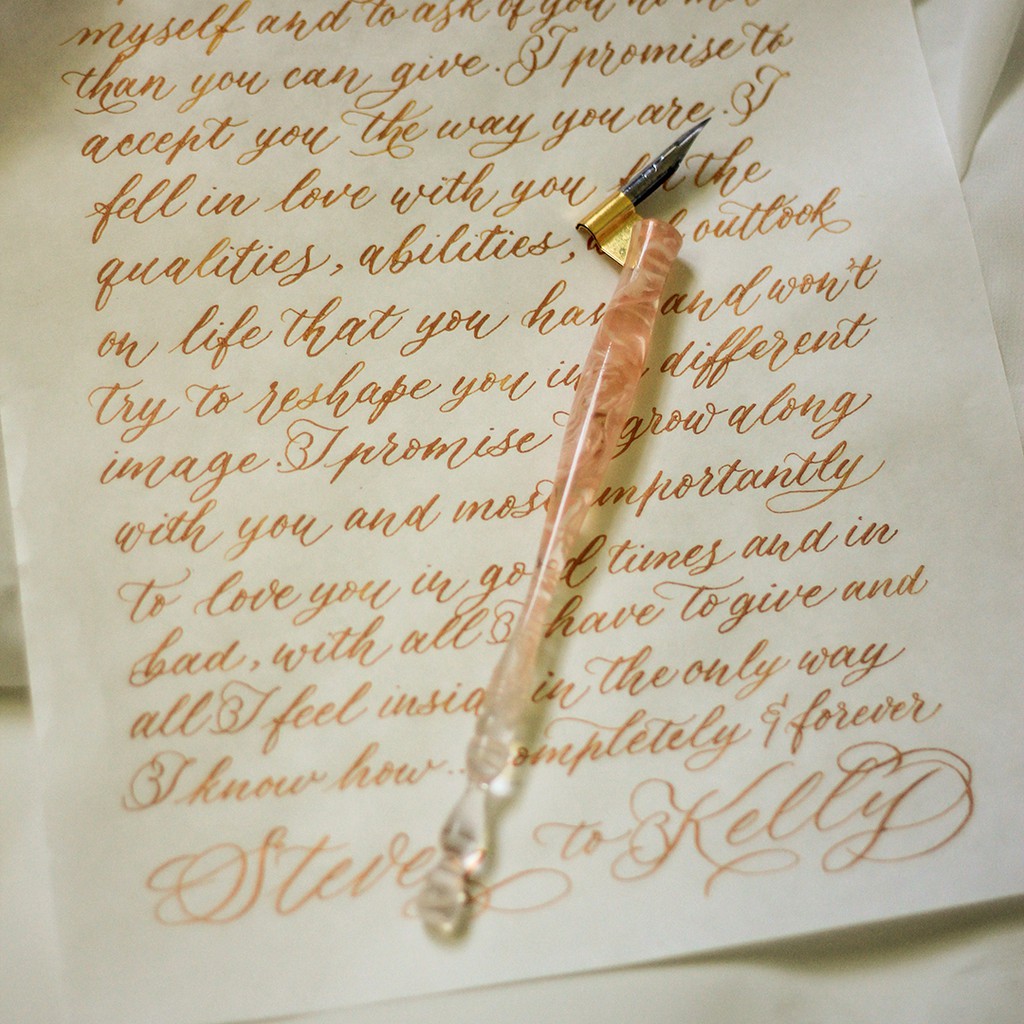 myself and to ask of you no
than you can give. I promise to
accept you the way you are. I
fell in love with you the
qualities, abilities, outlook
on life that you and won't
try to reshape you in different
image. I promise grow along
with you and most importantly
to love you in good times and in
bad, with all I have to give and
all I feel inside in the only way
I know how... completely & forever
Steve to Kelly